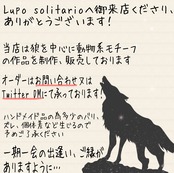 Lupo solitarioへ御来店くださり、
ありがとうございます!
当店は狼を中心に動物系モチーフ
の作品を制作、販売しております
オーダーはお問い合わせ又は
Twitter DMにて承っております!
ハンドメイド品の為多少のバリ、
ズレ、個体差など生じるので
予めご了承ください
一期一会の出逢い、ご縁が
ありますように…